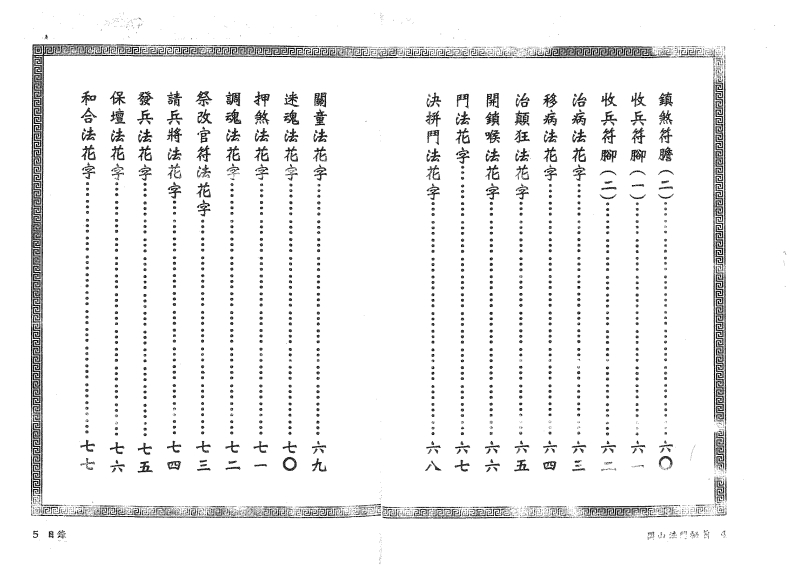 鎮煞符膽(二)……六〇
收兵符腳(一)……六一
收兵符腳(二)……六二
治病法花字……六三
移病法花字……六四
治顛狂法花字……六五
開鎖喉法花字……六六
鬥法花字……六七
決拼鬥法花字……六八
關童法花字……六九
迷魂法花字……七〇
押煞法花字……七一
調魂法花字……七二
祭改官符法花字……七三
請兵將法花字……七四
發兵法花字……七五
保壇法花字……七六
和合法花字……七七
閭山法門秘旨 4
5 目錄